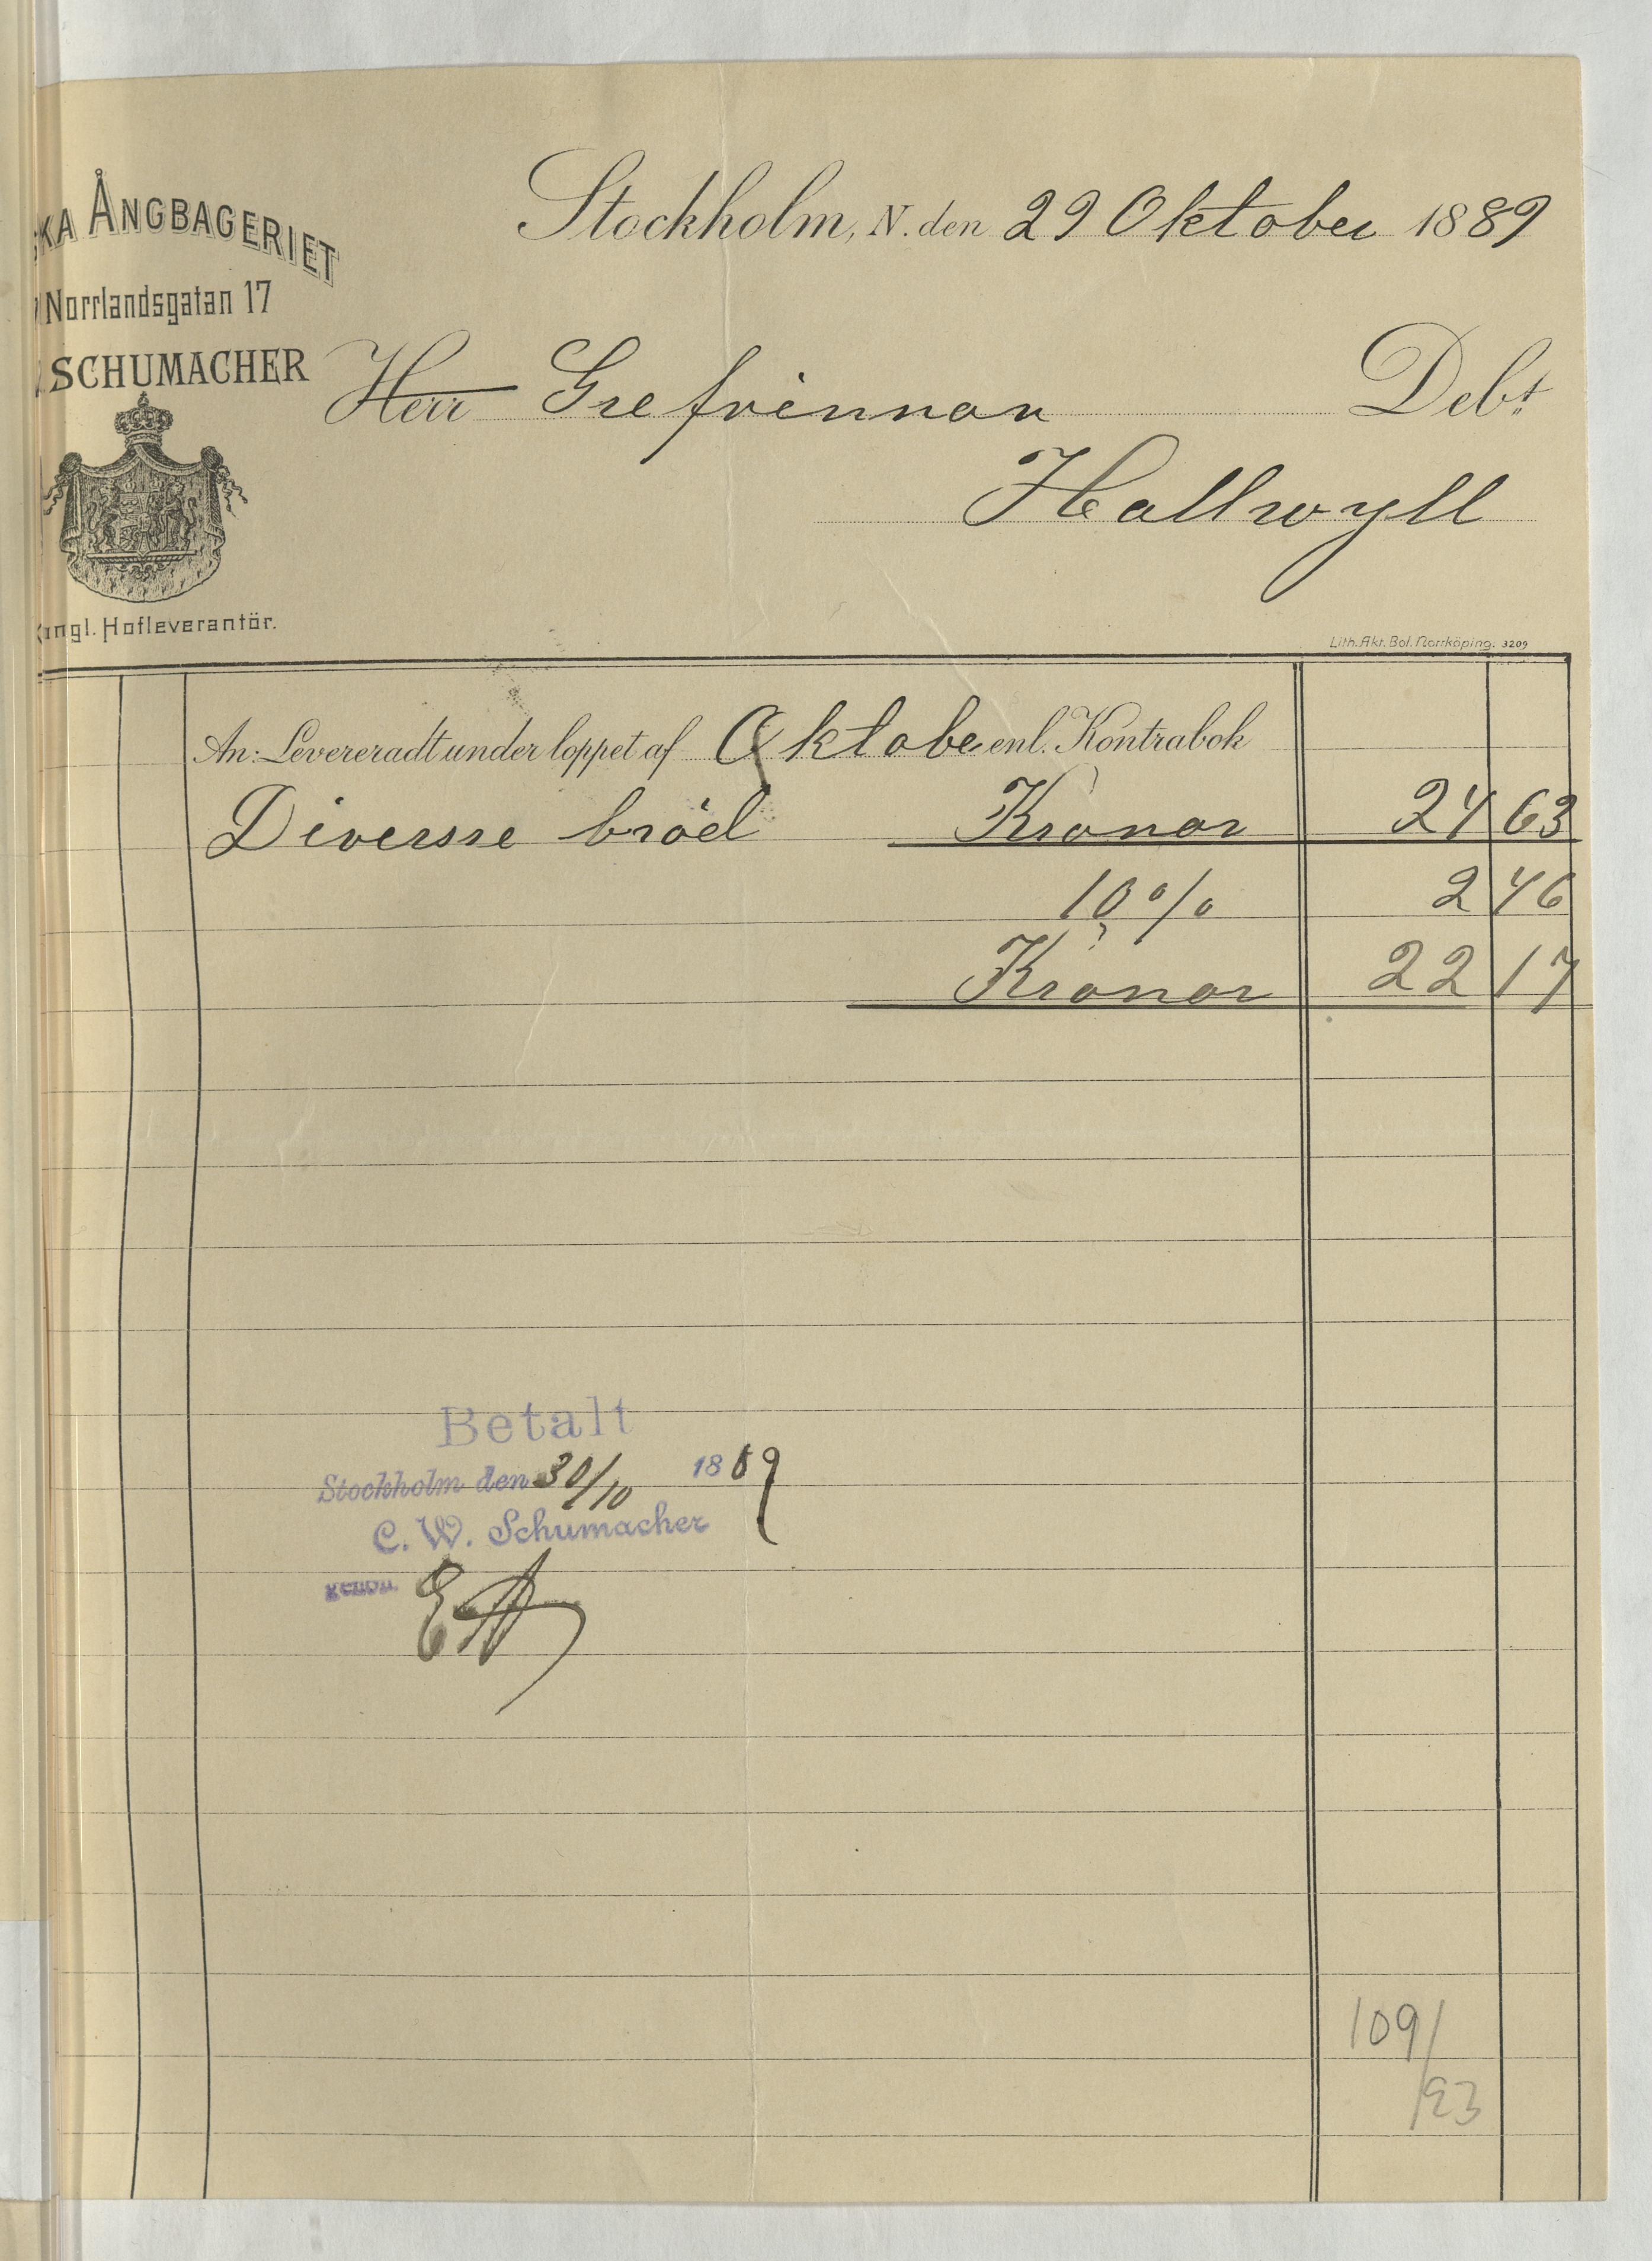 KA ÅNGBAGERIET
Stockholm, N. den 29 Oktober 1889
Norrlandsgatan 17
SCHUMACHER
Herr Grefvinnan Debt
Hallwyll
Kongl. Hofleverantör.
Lith. Akt. Bol. Norrköping. 3209
An: Levereradt under loppet af Oktober enl. Kontrabok
Diversse bröd Kronor 24 63
10% 2 46
Kronor 22 17
Betalt
Stockholm den 30/10 1889
C. W. Schumacher
genom
109/
/93